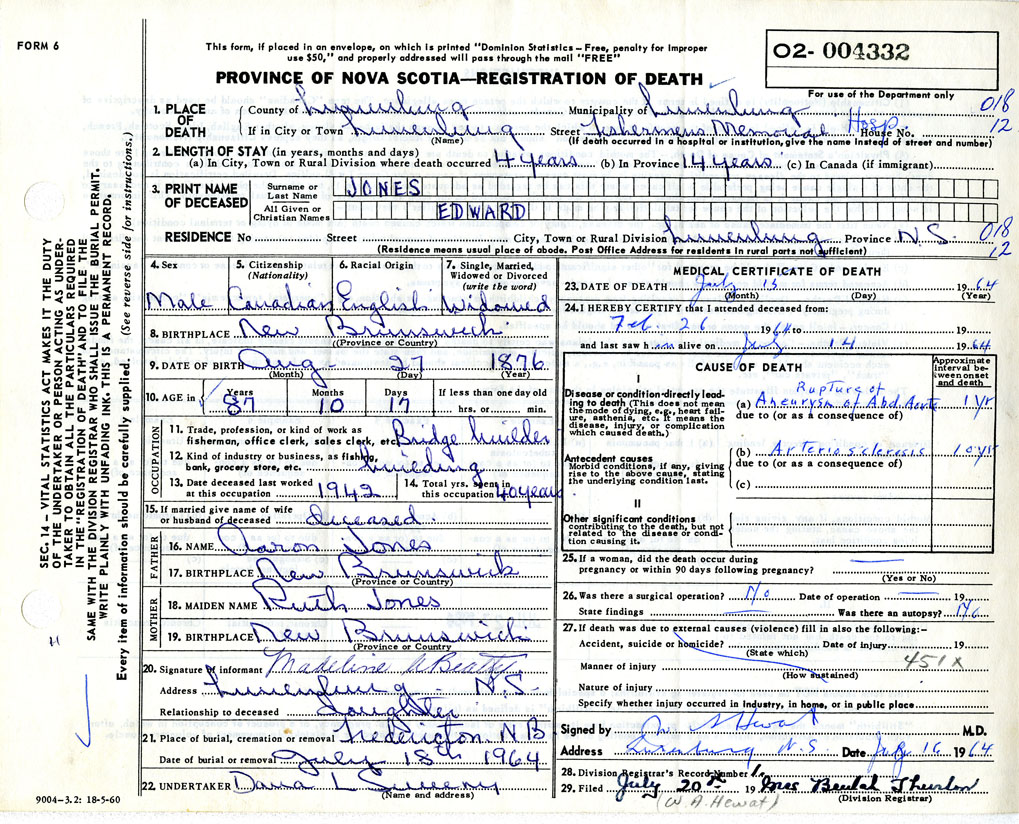 FORM 6
This form, if placed in an envelope, on which is printed "Dominion Statistics – Free, penalty for improper
use $50," and properly addressed will pass through the mail "FREE"
O2- 004332
PROVINCE OF NOVA SCOTIA—REGISTRATION OF DEATH
For use of the Department only
1. PLACE OF DEATH
County of Lunenburg Municipality of Lunenburg 018
If in City or Town Lunenburg Street Fishermens Memorial Hosp. House No. 12
(Name) (If death occurred in a hospital or institution, give the name instead of street and number)
2. LENGTH OF STAY (in years, months and days)
(a) In City, Town or Rural Division where death occurred 4 years (b) In Province 14 years (c) In Canada (if immigrant)
3. PRINT NAME OF DECEASED
Surname or Last Name JONES
All Given or Christian Names EDWARD
RESIDENCE No Street City, Town or Rural Division Lunenburg Province N.S. 018
(Residence means usual place of abode. Post Office Address for residents in rural parts not sufficient) 12
4. Sex Male
5. Citizenship (Nationality) Canadian
6. Racial Origin English
7. Single, Married, Widowed or Divorced (write the word) Widowed
8. BIRTHPLACE New Brunswick
(Province or Country)
9. DATE OF BIRTH Aug. 27 1876
(Month) (Day) (Year)
10. AGE in Years 87 Months 10 Days 17 If less than one day old hrs. or min.
OCCUPATION
11. Trade, profession, or kind of work as fisherman, office clerk, sales clerk, etc. Bridge builder
12. Kind of industry or business, as fishing, bank, grocery store, etc. building
13. Date deceased last worked at this occupation 1942
14. Total yrs. spent in this occupation 40 years
15. If married give name of wife or husband of deceased deceased.
FATHER
16. NAME Aaron Jones
17. BIRTHPLACE New Brunswick
(Province or Country)
MOTHER
18. MAIDEN NAME Ruth Jones
19. BIRTHPLACE New Brunswick
(Province or Country
20. Signature of informant Madeline A Beatty
Address Lunenburg N.S.
Relationship to deceased Daughter
21. Place of burial, cremation or removal Fredericton N B
Date of burial or removal July 18th 1964
22. UNDERTAKER Dana L Sweeny
(Name and address)
9004–3.2: 18-5-60
SEC. 14 – VITAL STATISTICS ACT MAKES IT THE DUTY
OF THE UNDERTAKER OR PERSON ACTING AS UNDER-
TAKER TO OBTAIN ALL THE PARTICULARS REQUIRED
IN THE "REGISTRATION OF DEATH" AND TO FILE THE
SAME WITH THE DIVISION REGISTRAR WHO SHALL ISSUE THE BURIAL PERMIT.
WRITE PLAINLY WITH UNFADING INK. THIS IS A PERMANENT RECORD.
Every item of information should be carefully supplied. (See reverse side for instructions.)
MEDICAL CERTIFICATE OF DEATH
23. DATE OF DEATH July 13 1964
(Month) (Day) (Year)
24. I HEREBY CERTIFY that I attended deceased from:
Feb 26 1964 to 19
and last saw him alive on July 14 1964
CAUSE OF DEATH
Approximate interval between onset and death
I
Disease or condition directly leading to death (This does not mean the mode of dying, e.g., heart failure, asthenia, etc. It means the disease, injury, or complication which caused death.)
(a) Rupture of Aneurysm of Abd Aorta 1 yr
due to (or as a consequence of)
Antecedent causes
Morbid conditions, if any, giving rise to the above cause, stating the underlying condition last.
(b) Arteriosclerosis 10 yrs
due to (or as a consequence of)
(c)
II
Other significant conditions
contributing to the death, but not related to the disease or condition causing it.
25. If a woman, did the death occur during
pregnancy or within 90 days following pregnancy?
(Yes or No)
26. Was there a surgical operation? No Date of operation 19
State findings Was there an autopsy? No
27. If death was due to external causes (violence) fill in also the following:–
Accident, suicide or homicide? Date of injury 19
(State which) 451x
Manner of injury
(How sustained)
Nature of injury
Specify whether injury occurred in industry, in home, or in public place
Signed by Hewat M.D.
Address Lunenburg N.S. Date July 16 1964
28. Division Registrar's Record Number
29. Filed July 20th 19 Mrs Beulah
(W. A. Hewat) (Division Registrar)